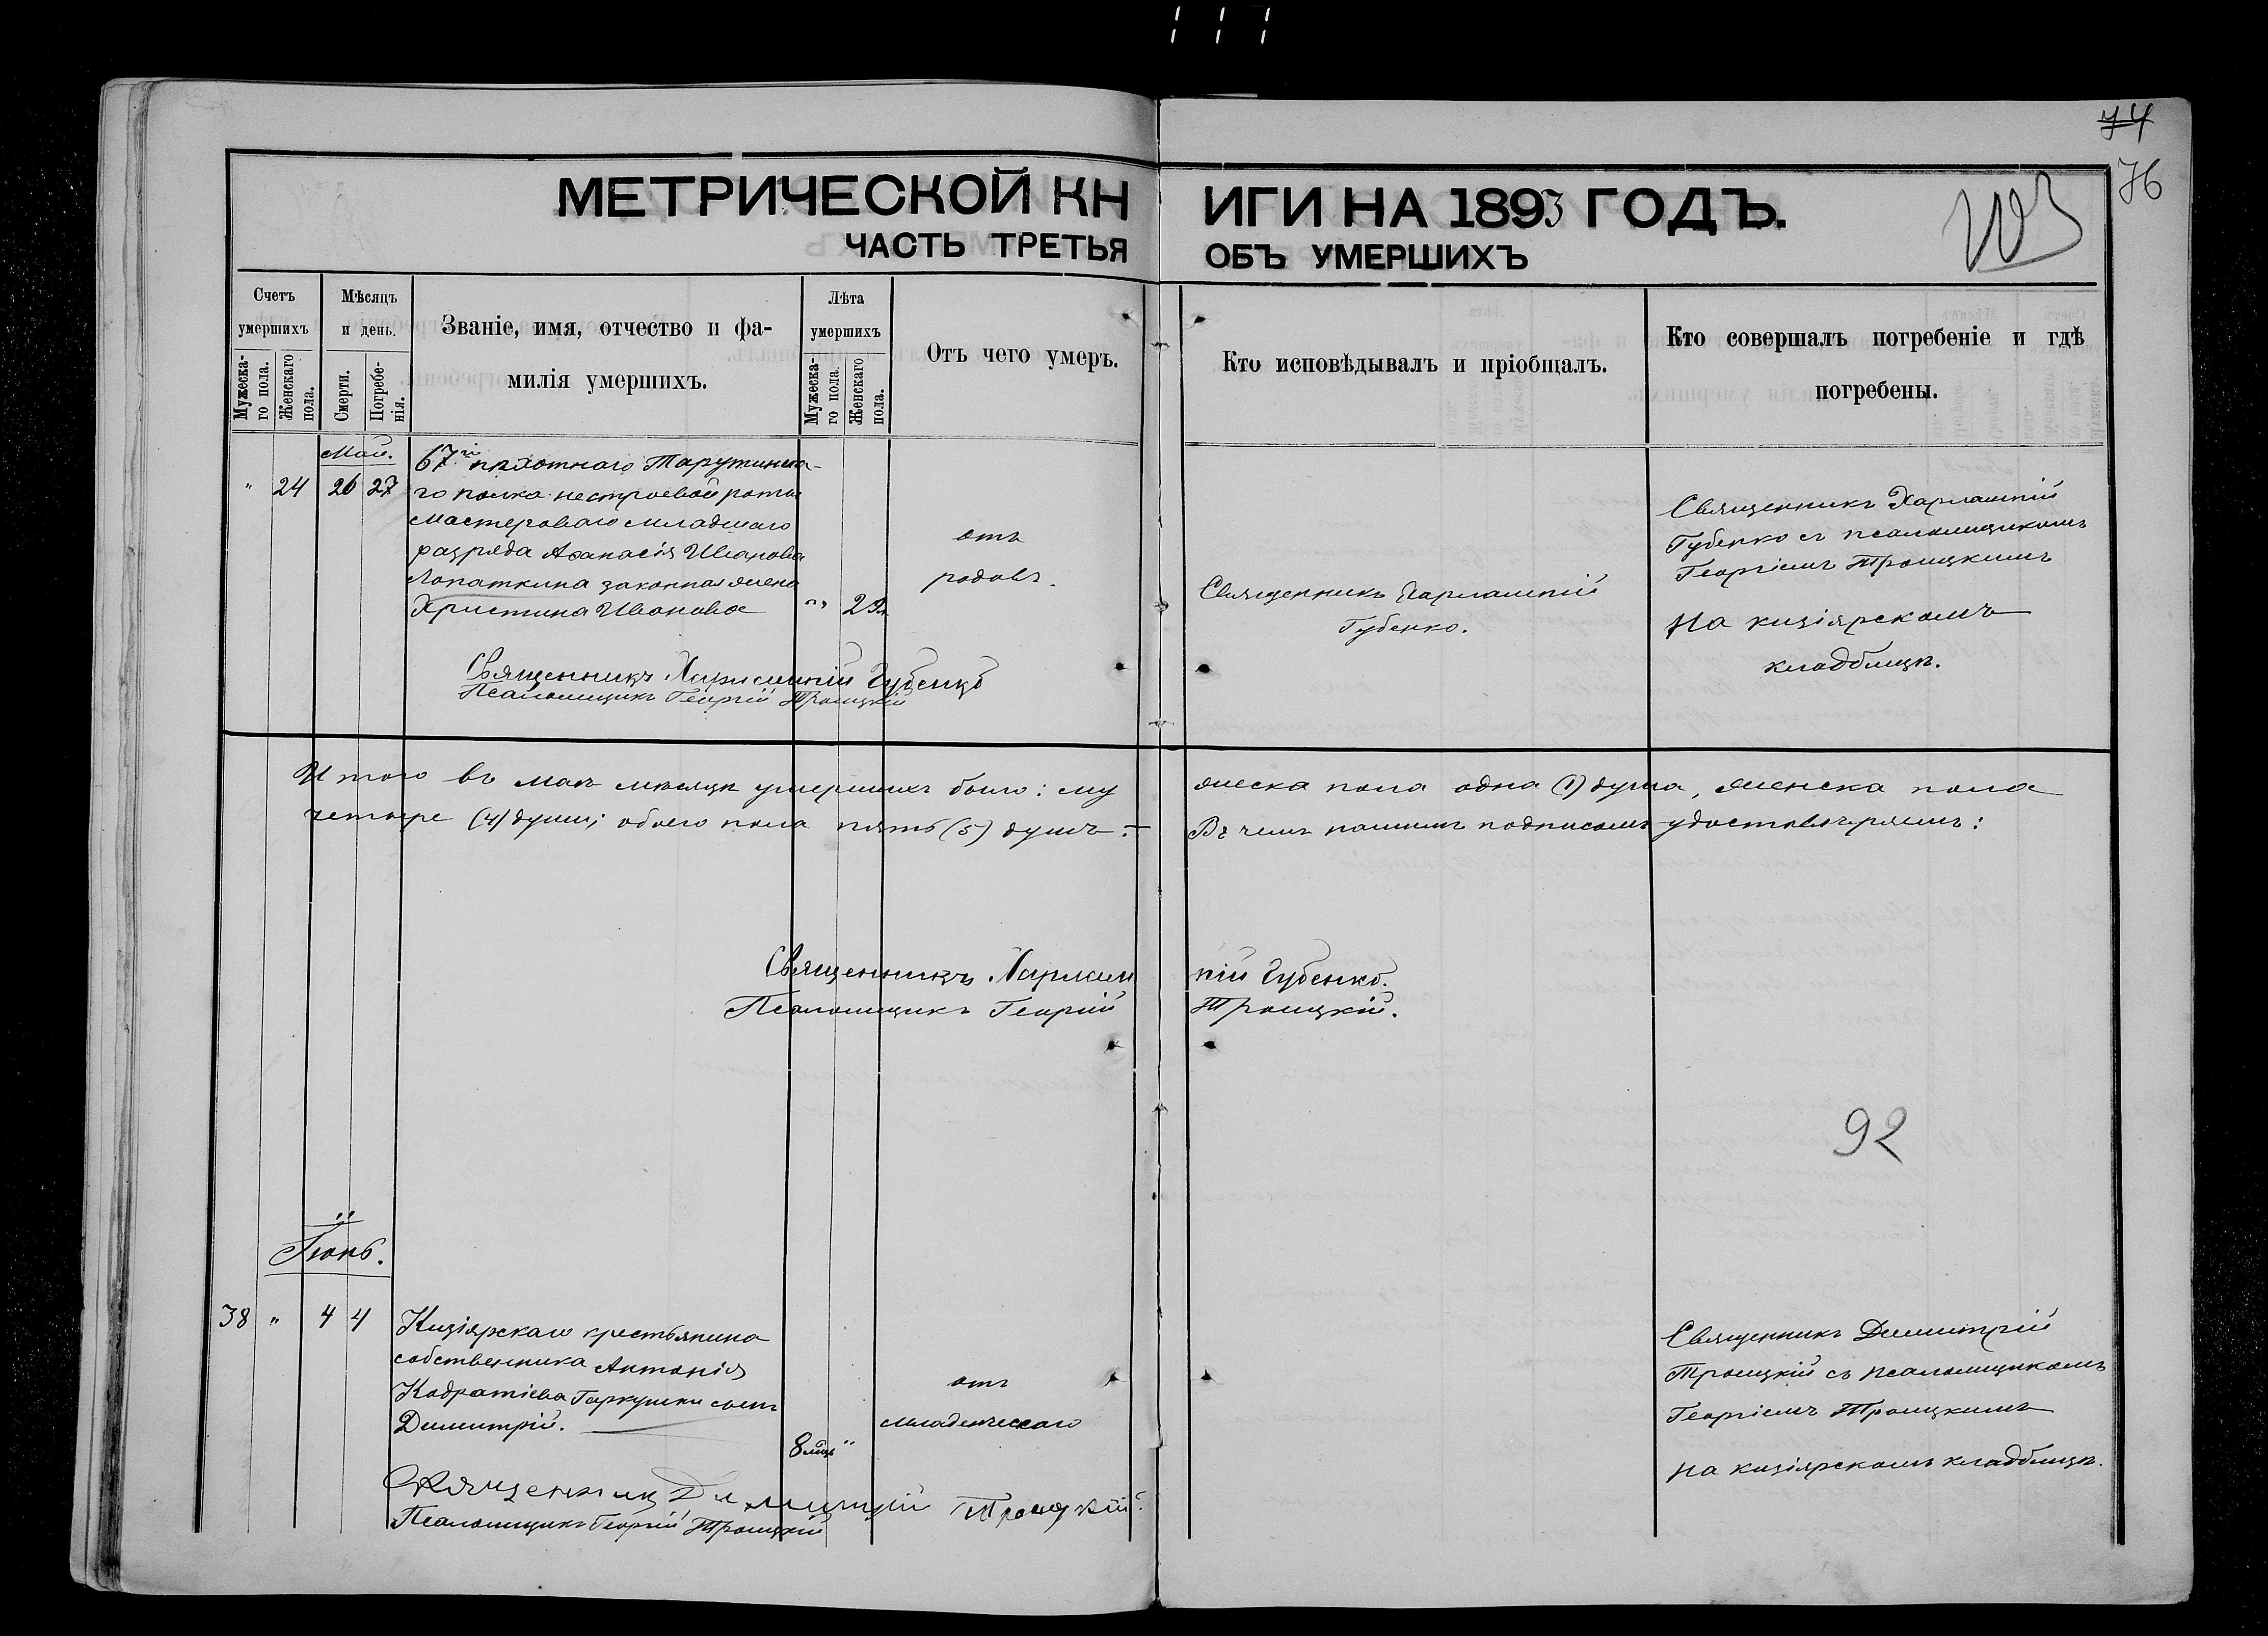 74
76
103
МЕТРИЧЕСКОЙ КНИГИ НА 1893 ГОДЪ.
ЧАСТЬ ТРЕТЬЯ ОБЪ УМЕРШИХЪ
Счетъ умершихъ
Мужеска-го пола.
Женскаго пола.
Мѣсяцъ и день.
Смерти.
Погребе-нія.
Званіе, имя, отчество и фа-
милія умершихъ.
Лѣта умершихъ
Мужеска-го пола.
Женскаго пола.
Отъ чего умеръ.
Кто исповѣдывалъ и пріобщалъ.
Кто совершалъ погребеніе и гдѣ
погребены.
Май.
" 24 26 27
67го пѣхотнаго Тарутинска-
го полка нестроевой роты
мастероваго младшаго
разряда Аѳанасія Иванова
Лопаткина законная жена
Христина Иванова
" 29
отъ
родовъ.
Священникъ Харлампій
Губенко.
Священникъ Харлампій
Губенко съ псаломщикомъ
Георгіемъ Троицкимъ
на кизіярскомъ
кладбищѣ.
Священникъ Харлампій Губенко
Псаломщикъ Георгій Троицкій
Итого въ маѣ мѣсяцѣ умершихъ было: мужеска пола одна (1) душа, женска пола
четыре (4) души; обоего пола пять (5) душъ. — Въ чемъ нашимъ подписомъ удостовѣряемъ:
Священникъ Харлампій Губенко.
Псаломщикъ Георгій Троицкій.
92
Іюнь.
38 " 4 4
Кизіярскаго крестьянина
собственника Антонія
Кодратіева Гаркуши сынъ
Димитрій.
8 мць "
отъ
младенческаго
Священникъ Димитрій
Троицкій съ псаломщикомъ
Георгіемъ Троицкимъ
на кизіярскомъ кладбищѣ.
Священникъ Димитрій Троицкій.
Псаломщикъ Георгій Троицкій